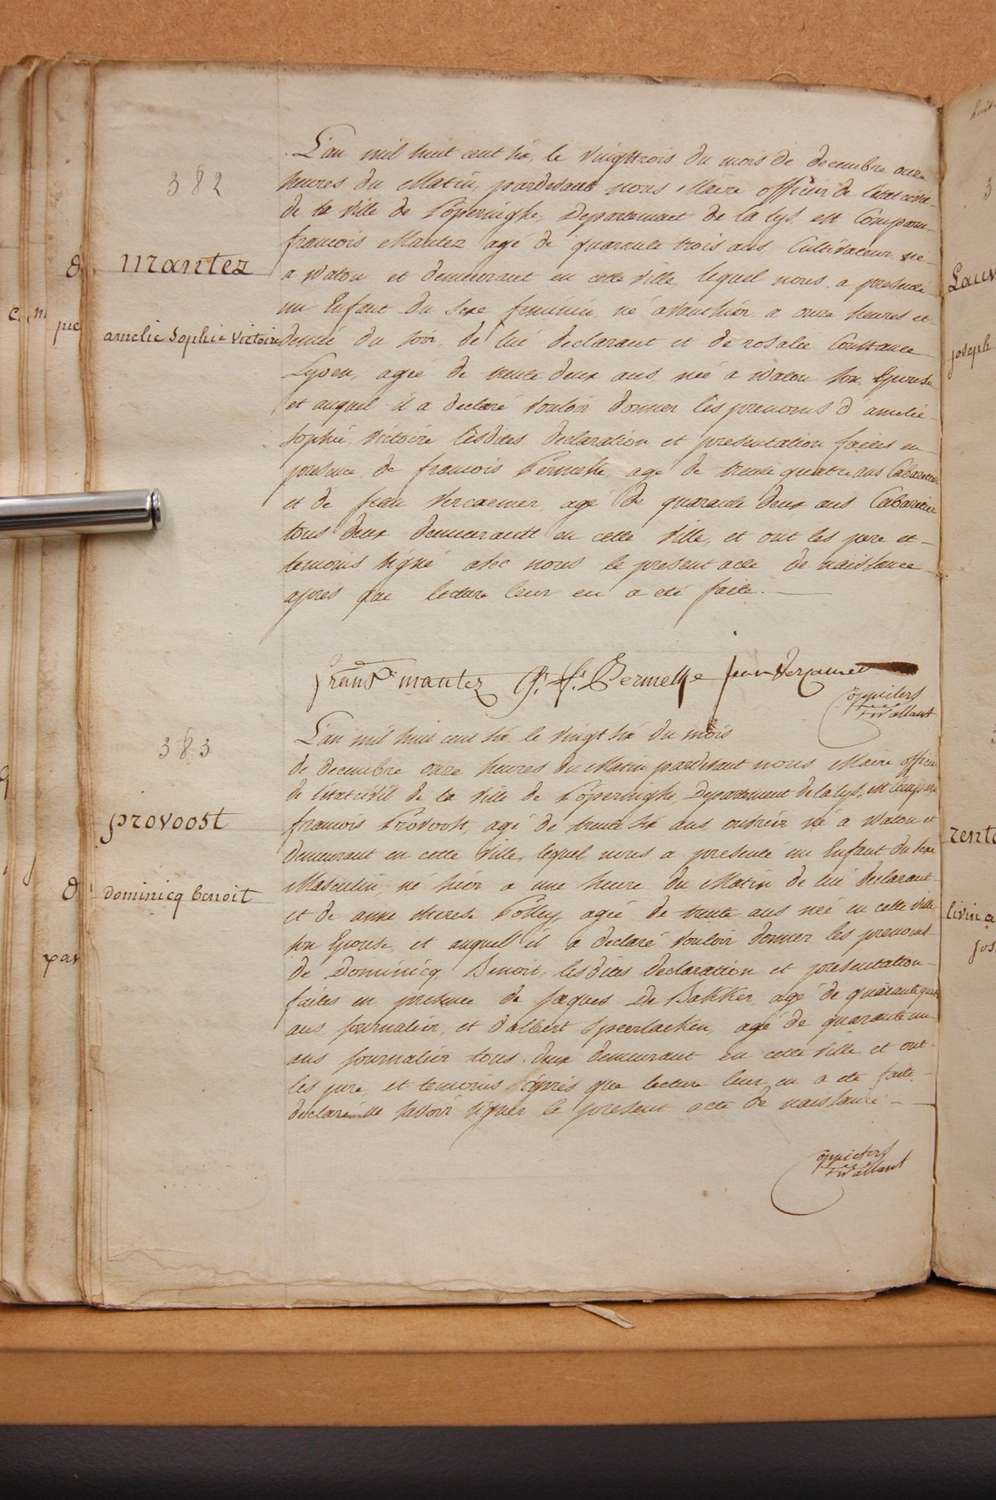 382
mantez
amelie Sophie Victoire
L'an mil huit cent six, le vingttrois du mois de decembre onze
heures du Matin, pardevant nous Maire officier de l'etat civil
de la ville de Poperinghe, Departement de la Lys, est Comparu
francois Mantez agé de quarante trois ans Cultivateur né
a Watou et demeurant en cette ville, lequel nous a presenté
un Enfant du Sexe feminin né avanthier a onze heures et
demie du soir de lui declarant et de rosalie Constance
agée de trente deux ans née a Watou son Epouse
et auquel il a declaré vouloir donner les prenoms d'amelie
Sophie Victoire lesdites declaration et presentation faites en
presence de francois Permeke agé de trente quatre ans Cabaretier
et de Jean agé de quarante deux ans Cabaretier
tous deux demeurant en cette ville, et ont les pere et
temoins signé avec nous le present acte de naissance
apres que lecture leur en a eté faite.
frans mantez P. f. Permeke jean
Wallaert
383
provoost
Dominicq Benoit
L'an mil huit cent six le vingt six du mois
de decembre onze heures du Matin pardevant nous Maire officier
de l'etat civil de la ville de Poperinghe Departement de la Lys, est Comparu
francois Provoost, agé de trente six ans ouvrier né a Watou et
demeurant en cette ville, lequel nous a presenté un Enfant du Sexe
Masculin né hier a une heure du Matin de lui declarant
et de anne therese Polley agée de trente ans née en cette ville
son Epouse, et auquel il a declaré vouloir donner les prenoms
de Dominicq Benoit, lesdites declaration et presentation
faites en presence de Jacques De Bakker agé de quarante quatre
ans journalier, et d'albert Speerlaeken, agé de quarante un
ans journalier tous deux demeurant en cette ville et ont
les pere et temoins apres que lecture leur en a eté faite
declaré ne savoir signer le present acte de naissance
Wallaert